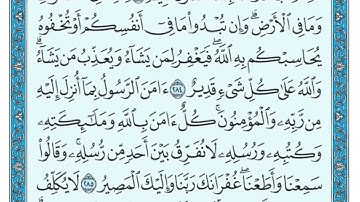 وَمَا فِي ٱلْأَرْضِۗ وَإِن تُبْدُوا۟ مَا فِىٓ أَنفُسِكُمْ أَوْ تُخْفُوهُ
يُحَاسِبْكُم بِهِ ٱللَّهُۖ فَيَغْفِرُ لِمَن يَشَآءُ وَيُعَذِّبُ مَن يَشَآءُۗ
وَٱللَّهُ عَلَىٰ كُلِّ شَىْءٍ قَدِيرٌ ٢٨٤ ءَامَنَ ٱلرَّسُولُ بِمَآ أُنزِلَ إِلَيْهِ
مِن رَّبِّهِۦ وَٱلْمُؤْمِنُونَۚ كُلٌّ ءَامَنَ بِٱللَّهِ وَمَلَـٰٓئِكَتِهِۦ
وَكُتُبِهِۦ وَرُسُلِهِۦ لَا نُفَرِّقُ بَيْنَ أَحَدٍ مِّن رُّسُلِهِۦۚ وَقَالُوا۟
سَمِعْنَا وَأَطَعْنَاۖ غُفْرَانَكَ رَبَّنَا وَإِلَيْكَ ٱلْمَصِيرُ ٢٨٥ لَا يُكَلِّفُ